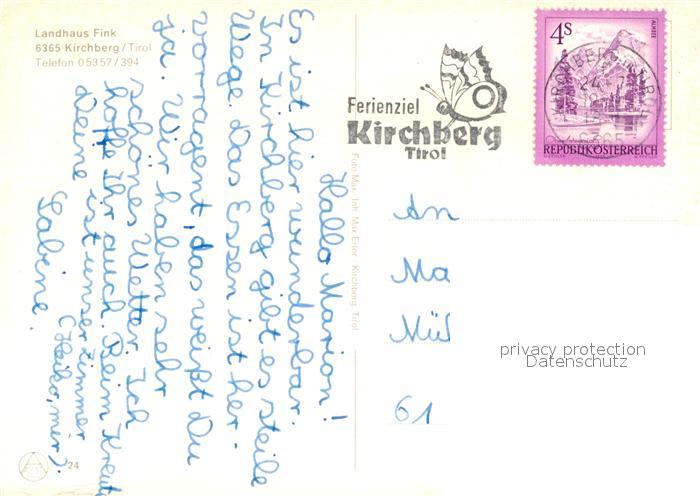 Landhaus Fink
6365 Kirchberg/Tirol
Telefon 05357/394
Hallo Marion!
Es ist hier wunderbar.
In Kirchberg gibt es steile
Wege. Das Essen ist her-
vorragent, das weißt Du
ja. Wir haben sehr
schönes Wetter. Ich
hoffe ihr auch. Beim Kreuz
ist unser Zimmer
(Heiko, mir).
Deine
Sabine.
24
Foto Max, Inh. Max Erler, Kirchberg, Tirol
Ferienziel
Kirchberg
Tirol
4S
ALMSEE
REPUBLIK ÖSTERREICH
An
Ma
Mü
61
privacy protection
Datenschutz